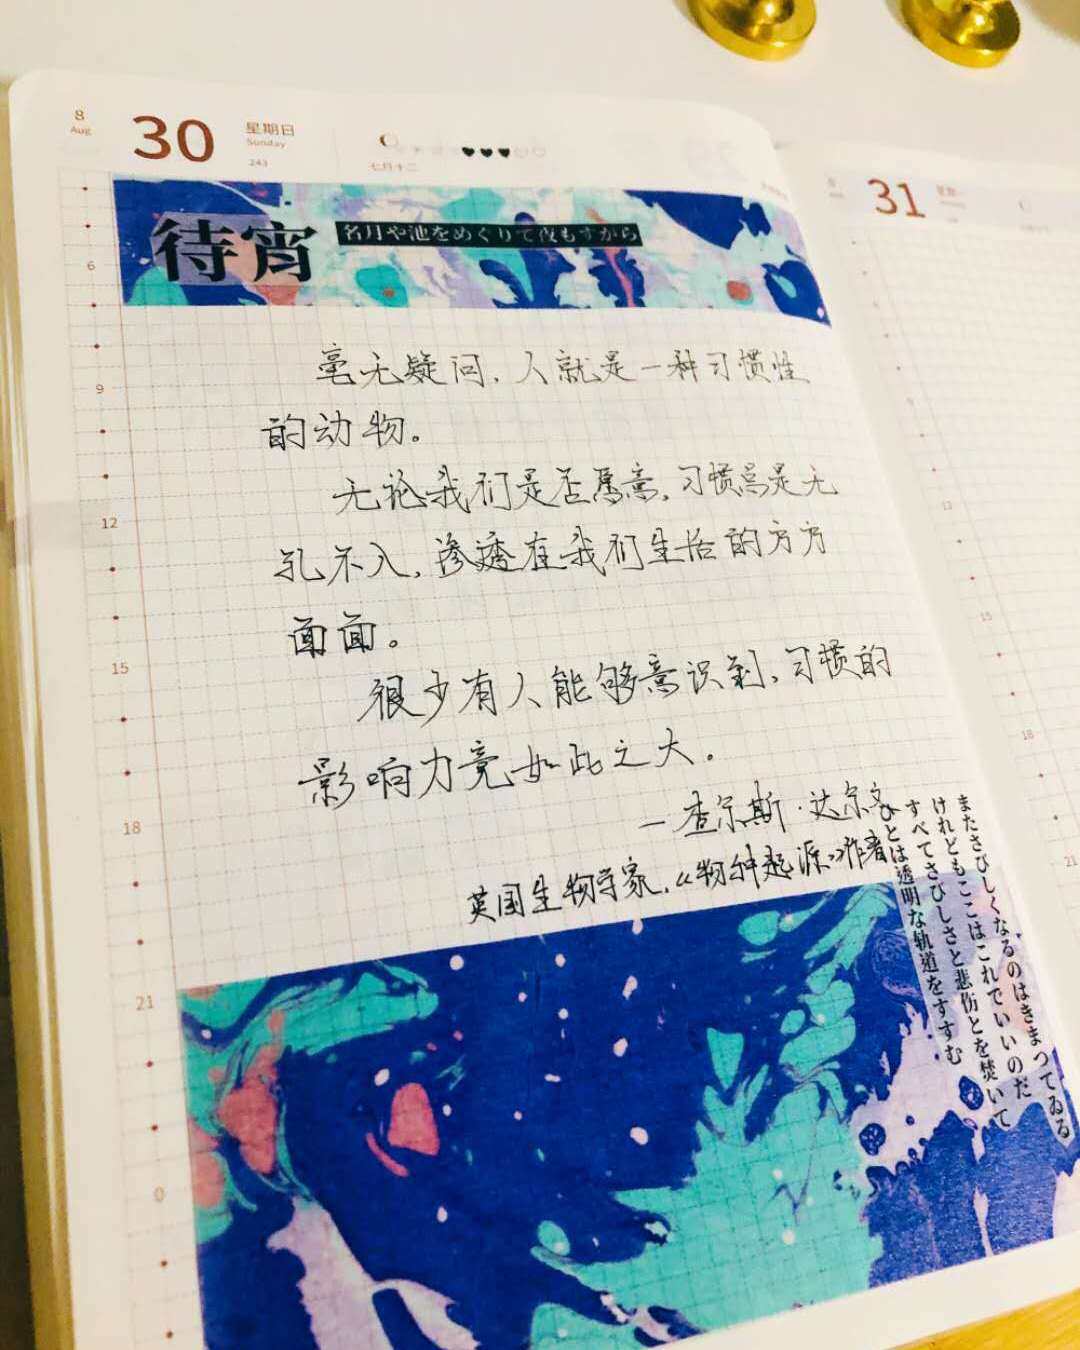 8
Aug
30
星期日
Sunday
243
七月十二
31
待宵
名月や池をめぐりて夜もすがら
毫无疑问，人就是一种习惯性
的动物。
无论我们是否愿意，习惯总是无
孔不入，渗透在我们生活的方方
面面。
很少有人能够意识到，习惯的
影响力竟如此之大。
—查尔斯·达尔文
英国生物学家，《物种起源》作者
またさびしくなるのはきまつてゐる
けれどもここはこれでいいのだ
すべてさびしさと悲傷とを焚いて
ひとは透明な軌道をすすむ
6
9
12
15
18
21
0
12
15
18
21